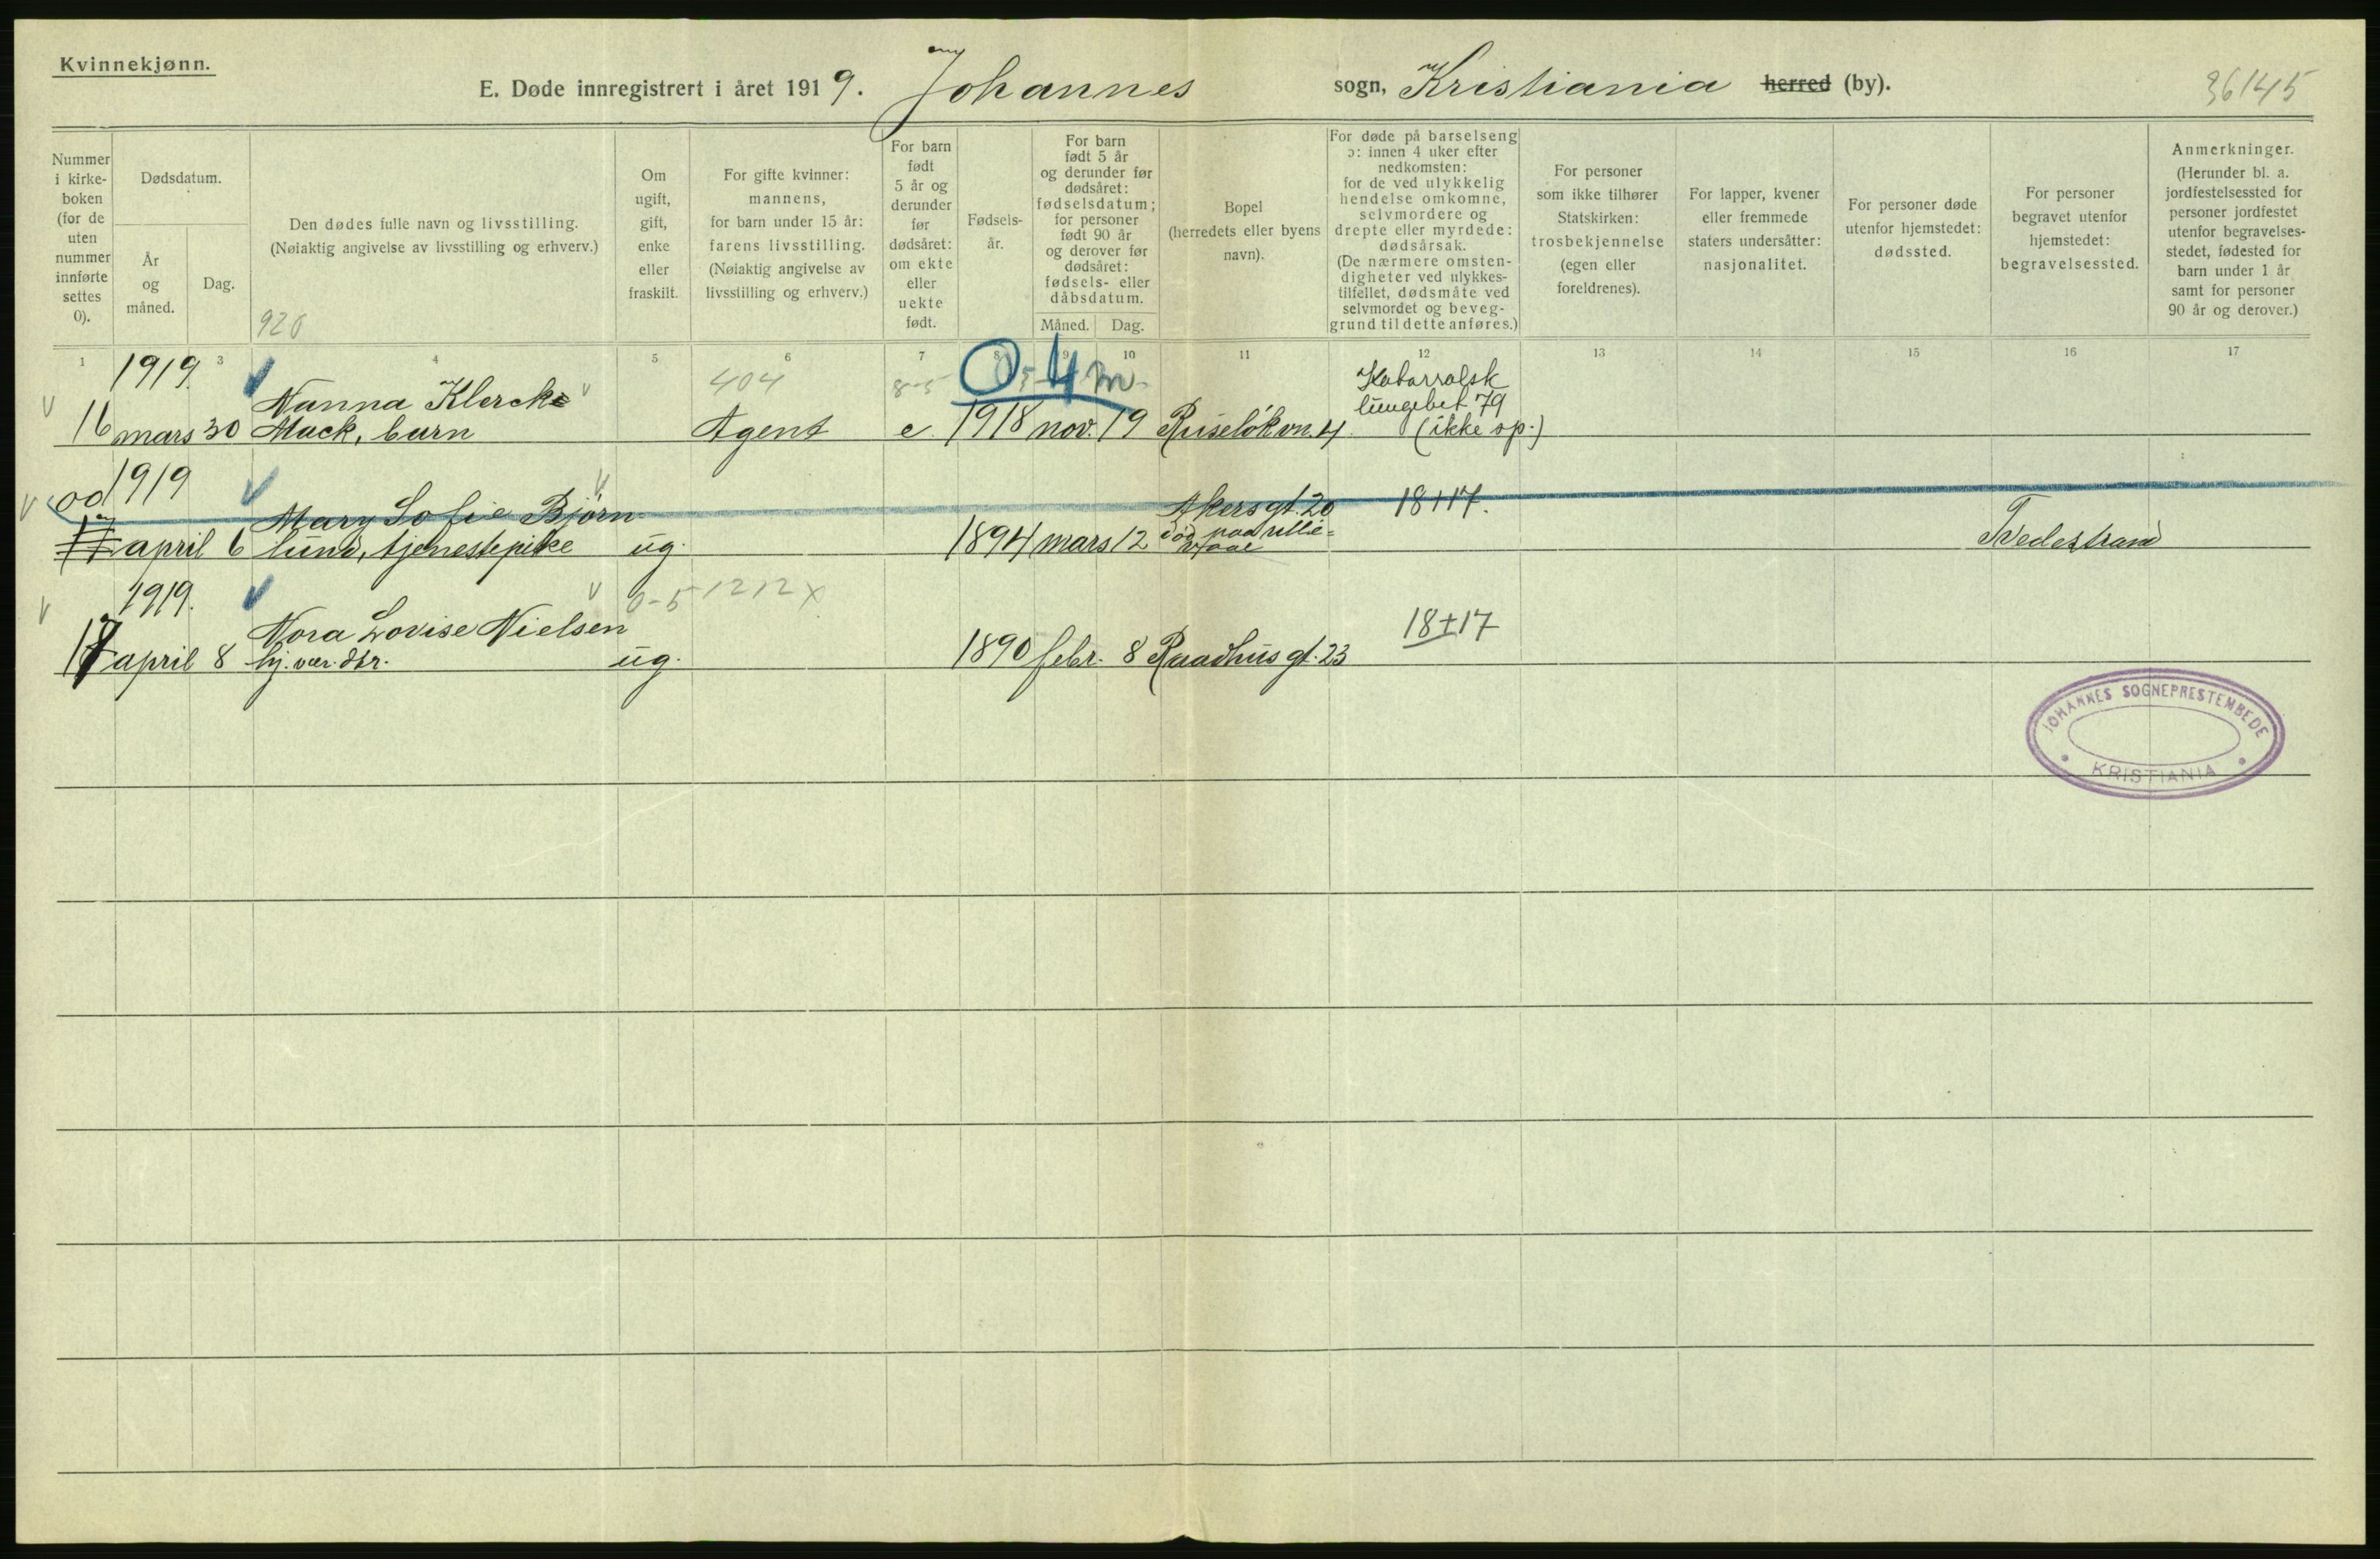 Kvinnekjønn.
E. Døde innregistrert i året 1919. Johannes sogn, Kristiania herred (by).
36145
Nummer i kirke-boken (for de uten nummer innførte settes 0).
Dødsdatum.
År og måned.
Dag.
Den dødes fulle navn og livsstilling.
(Nøiaktig angivelse av livsstilling og erhverv.)
920
Om ugift, gift, enke eller fraskilt.
For gifte kvinner: mannens, for barn under 15 år: farens livsstilling.
(Nøiaktig angivelse av livsstilling og erhverv.)
For barn født 5 år og derunder før dødsåret: om ekte eller uekte født.
Fødsels-år.
For barn født 5 år og derunder før dødsåret: fødselsdatum; for personer født 90 år og derover før dødsåret: fødsels- eller dåbsdatum.
Måned. Dag.
Bopel
(herredets eller byens navn).
For døde på barselseng ɔ: innen 4 uker efter nedkomsten: for de ved ulykkelig hendelse omkomne, selvmordere og drepte eller myrdede: dødsårsak.
(De nærmere omsten-digheter ved ulykkes-tilfellet, dødsmåte ved selvmordet og beveg-grund til dette anføres.)
For personer som ikke tilhører Statskirken: trosbekjennelse (egen eller foreldrenes).
For lapper, kvener eller fremmede staters undersåtter: nasjonalitet.
For personer døde utenfor hjemstedet: dødssted.
For personer begravet utenfor hjemstedet: begravelsessted.
Anmerkninger.
(Herunder bl. a. jordfestelsessted for personer jordfestet utenfor begravelses-stedet, fødested for barn under 1 år samt for personer 90 år og derover.)
1 3 4 5 6 7 8 9 10 11 12 13 14 15 16 17
1919. 404 8-5 0-4 m. Katarralsk
Nanna Klercke lungebet 79
16 mars 30 Mack, barn Agent e. 1918 nov. 19 Ruseløkvn. 4. (ikke op.)
od 1919
Mary Sofie Bjørn- Akersgt. 20 18+17.
17 april 6 lund, tjenestepike ug. 1894 mars 12 død paa Ullevaal Tvedestrand
1919. 0-5 1212 x
Nora Lovise Nielsen 18+17
17 april 8 hj.vær. dtr. ug. 1890 febr. 8 Raadhusgt. 23
JOHANNES SOGNEPRESTEMBEDE
KRISTIANIA